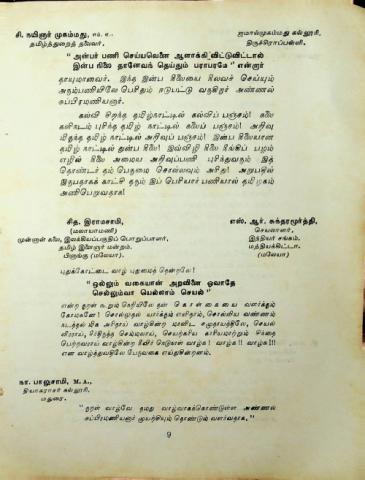 சி. நயினார் முகம்மது, எம். ஏ., ஜமால்முகம்மது கல்லூரி,
தமிழ்த்துறைத் தலைவர். திருச்சிராப்பள்ளி.
“ அன்பர் பணி செய்யலெனை ஆளாக்கி விட்டுவிட்டால்
இன்ப நிலை தானேவந் தெய்தும் பராபரமே ” என்றார்
தாயுமானவர். இந்த இன்ப நிலையை நிலவச் செய்யும்
அறம்பணியிலே பெரிதும் ஈடுபட்டு வருகிறார் அண்ணல்
சுப்பிரமணியனார்.
கல்வி சிறந்த தமிழ்நாட்டில் கல்விப் பஞ்சம்! கலை
களிநடம் புரிந்த தமிழ் நாட்டில் கலைப் பஞ்சம்! அறிவு
மிகுந்த தமிழ் நாட்டில் அறிவுப் பஞ்சம்! இன்ப நிலையான
தமிழ் நாட்டில் துன்ப நிலை! இவ்விழி நிலை நீங்கிப் பழம்
எழில் நிலை அமைய அறிவுப்பணி புரிந்துவரும் இத்
தொண்டர் தம் பெருமை சொல்லவும் அரிது! அறபறில்
இருபதாகக் காட்சி தரும் இப் பெரியார் பணியால் தமிழகம்
அணிபெறுவதாக!
சித. இராமசாமி, எஸ். ஆர். சுந்தரமூர்த்தி,
(மலாயாமணி) செயலாளர்,
முன்னாள் கலை, இலக்கியப்பகுதிப் பொறுப்பாளர், இந்தியர் சங்கம்.
தமிழ் இளைஞர் மன்றம். மத்தியக்கிட்டா.
பினாங்கு (மலேயா). (மலேயா)
புதுக்கோட்டை வாழ் புதுமைத் தென்றலே!
“ ஒல்லும் வகையான் அறவினை ஓவாதே
செல்லும்வா யெல்லாம் செயல் ”
என்ற குறள் கூறும் நெறியிலே தன் கொள்கையை வளர்த்தும்
கோமகனே! சொல்லுதல் யார்க்கும் எளிதாம், சொல்லிய வண்ணம்
நடத்தல் மிக அரிதாய் வாழ்கின்ற மானிட சமுதாயத்திலே, செயல்
வீரராய், சீர்திருத்தச் செம்மலாய், செயற்கரிய காரியமாற்றும் சிந்தை
பெற்றவராய் வாழ்கின்ற நீவிர் நெடுநாள் வாழ்க! வாழ்க!! வாழ்க!!!
என வாழ்த்துவதிலே பேருவகை எய்துகின்றனம்.
நா. பாலுசாமி, M. A.,
தியாகராசர் கல்லூரி,
மதுரை.
“ குறள் வாழ்வே தமது வாழ்வாகக்கொண்டுள்ள அண்ணல்
சுப்பிரமணியனார் முயற்சியும் தொண்டும் வளர்வதாக. ”
9